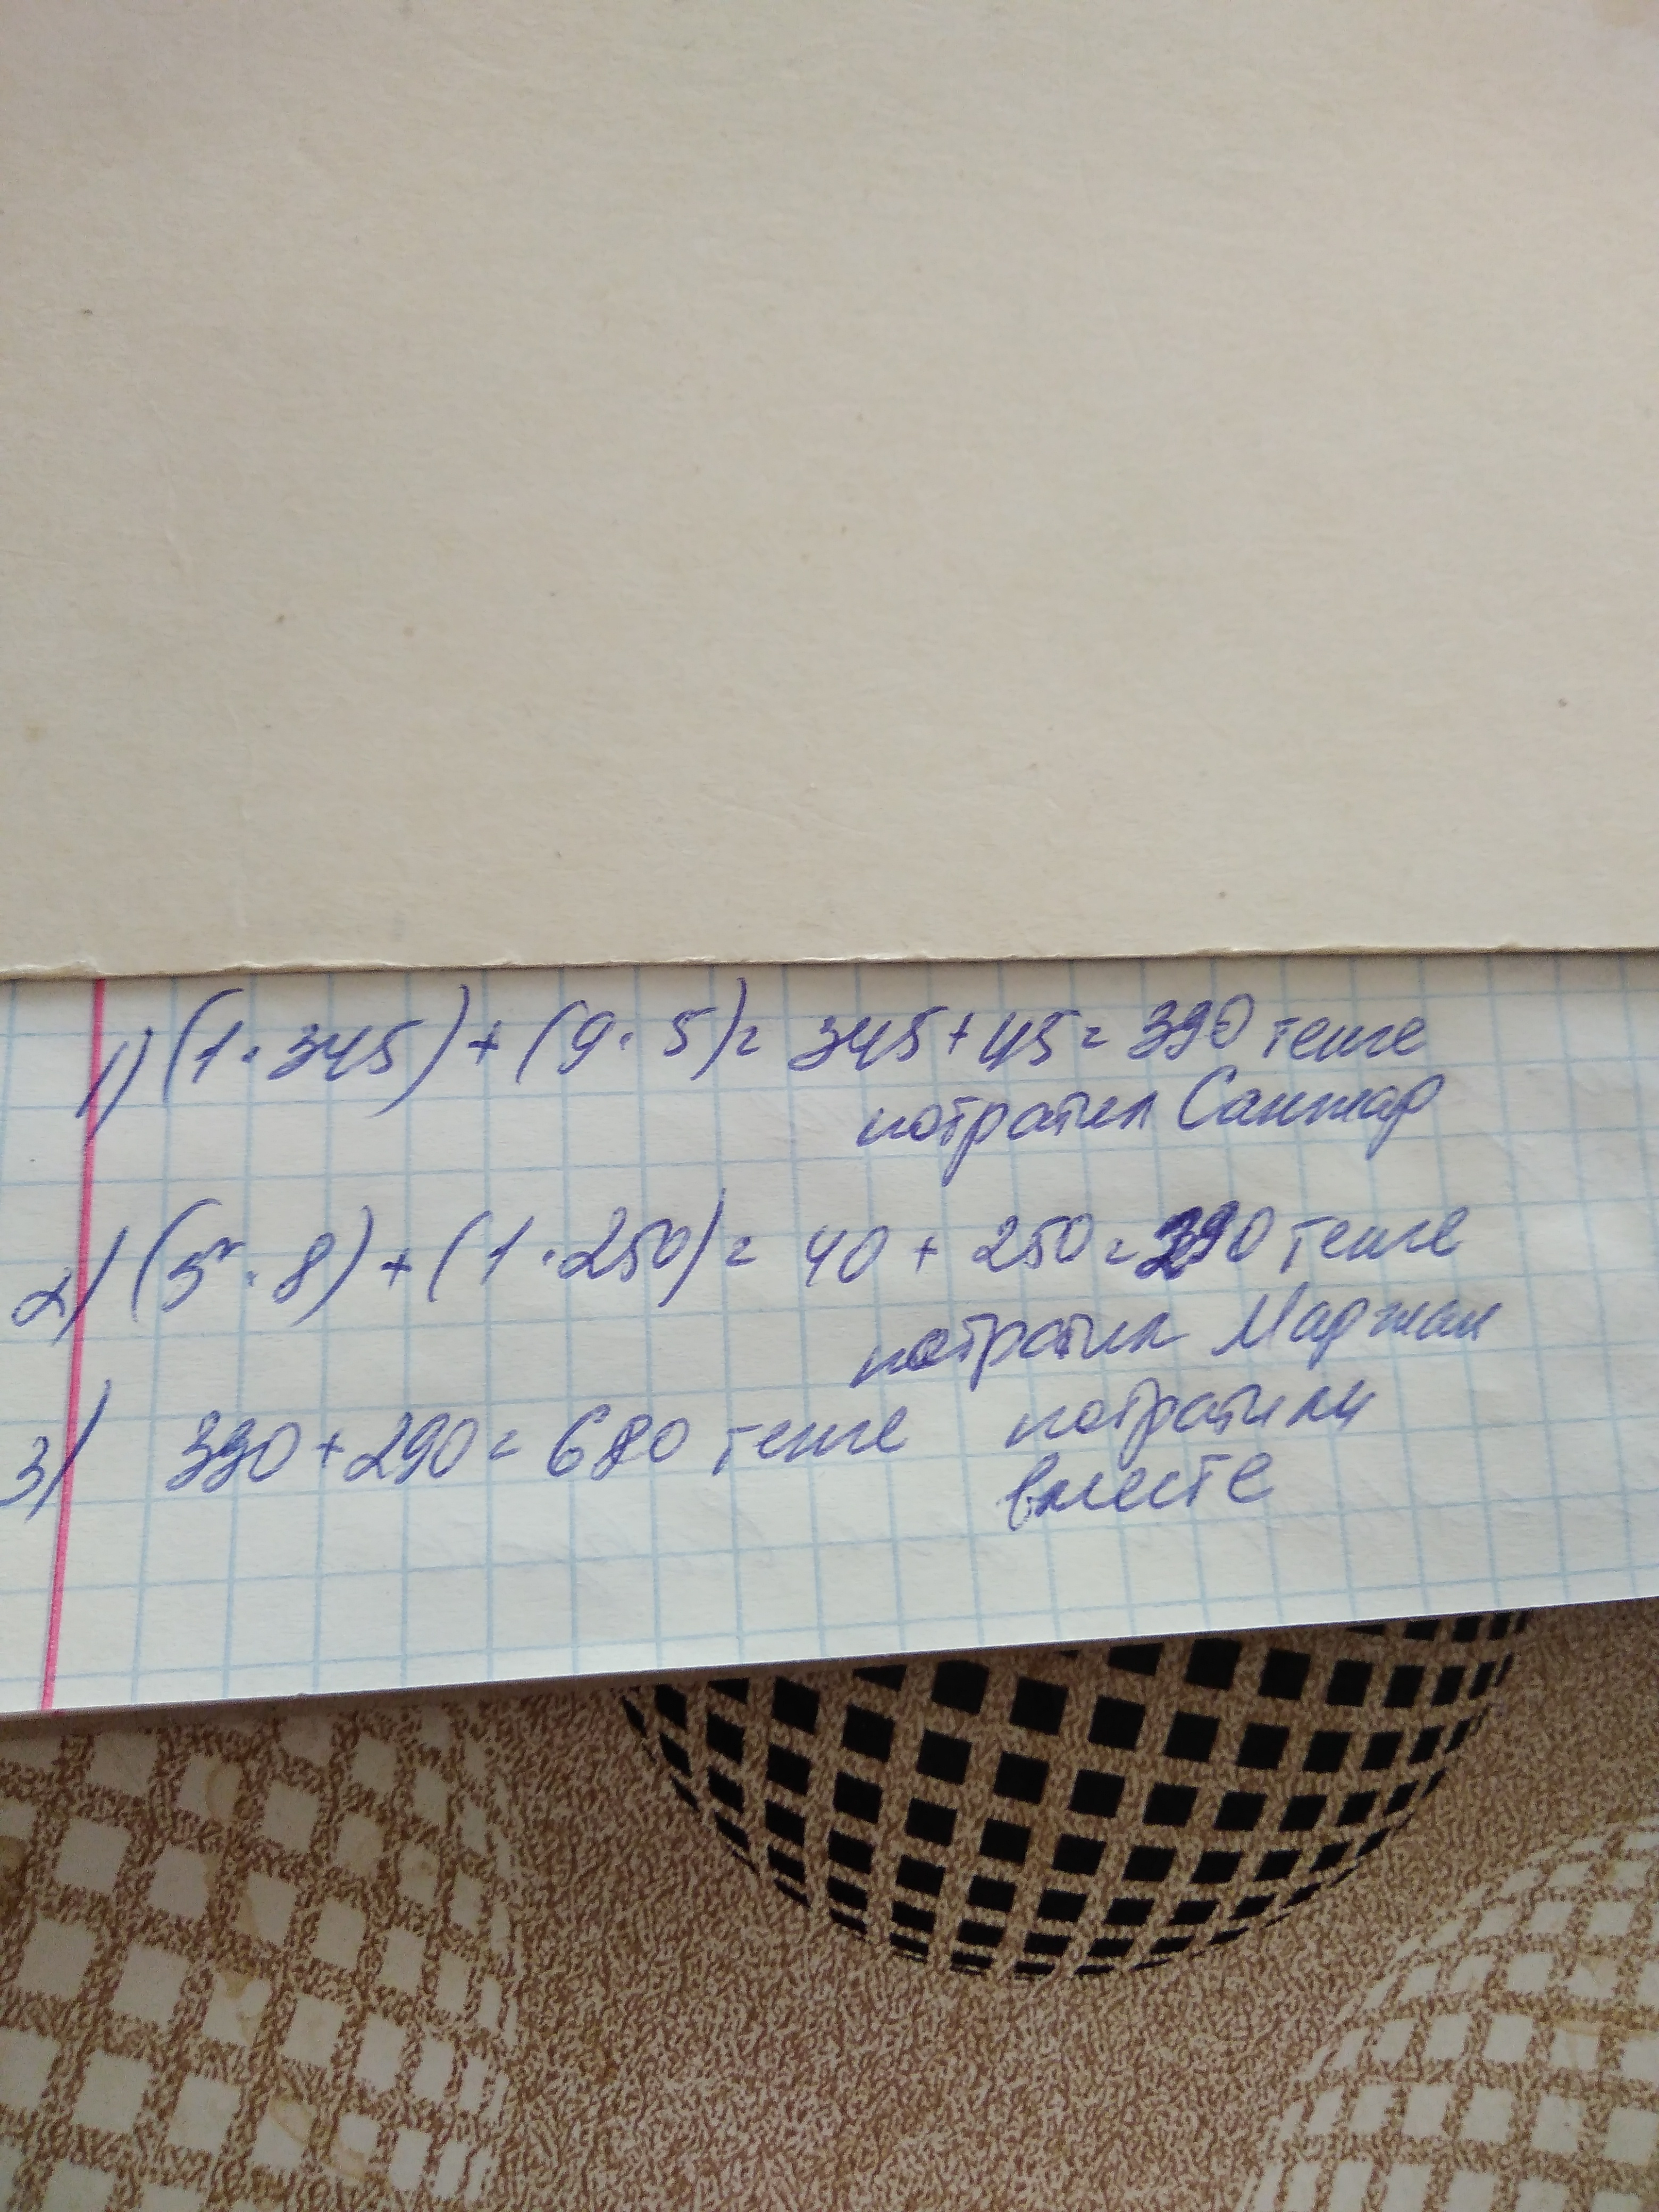 1) (1·345)+(9·5)= 345+45=390 тенге
потратил Санжар
2) (5·8)+(1·250)= 40+250=290 тенге
потратил Маржан
3) 390+290=680 тенге потратили
вместе